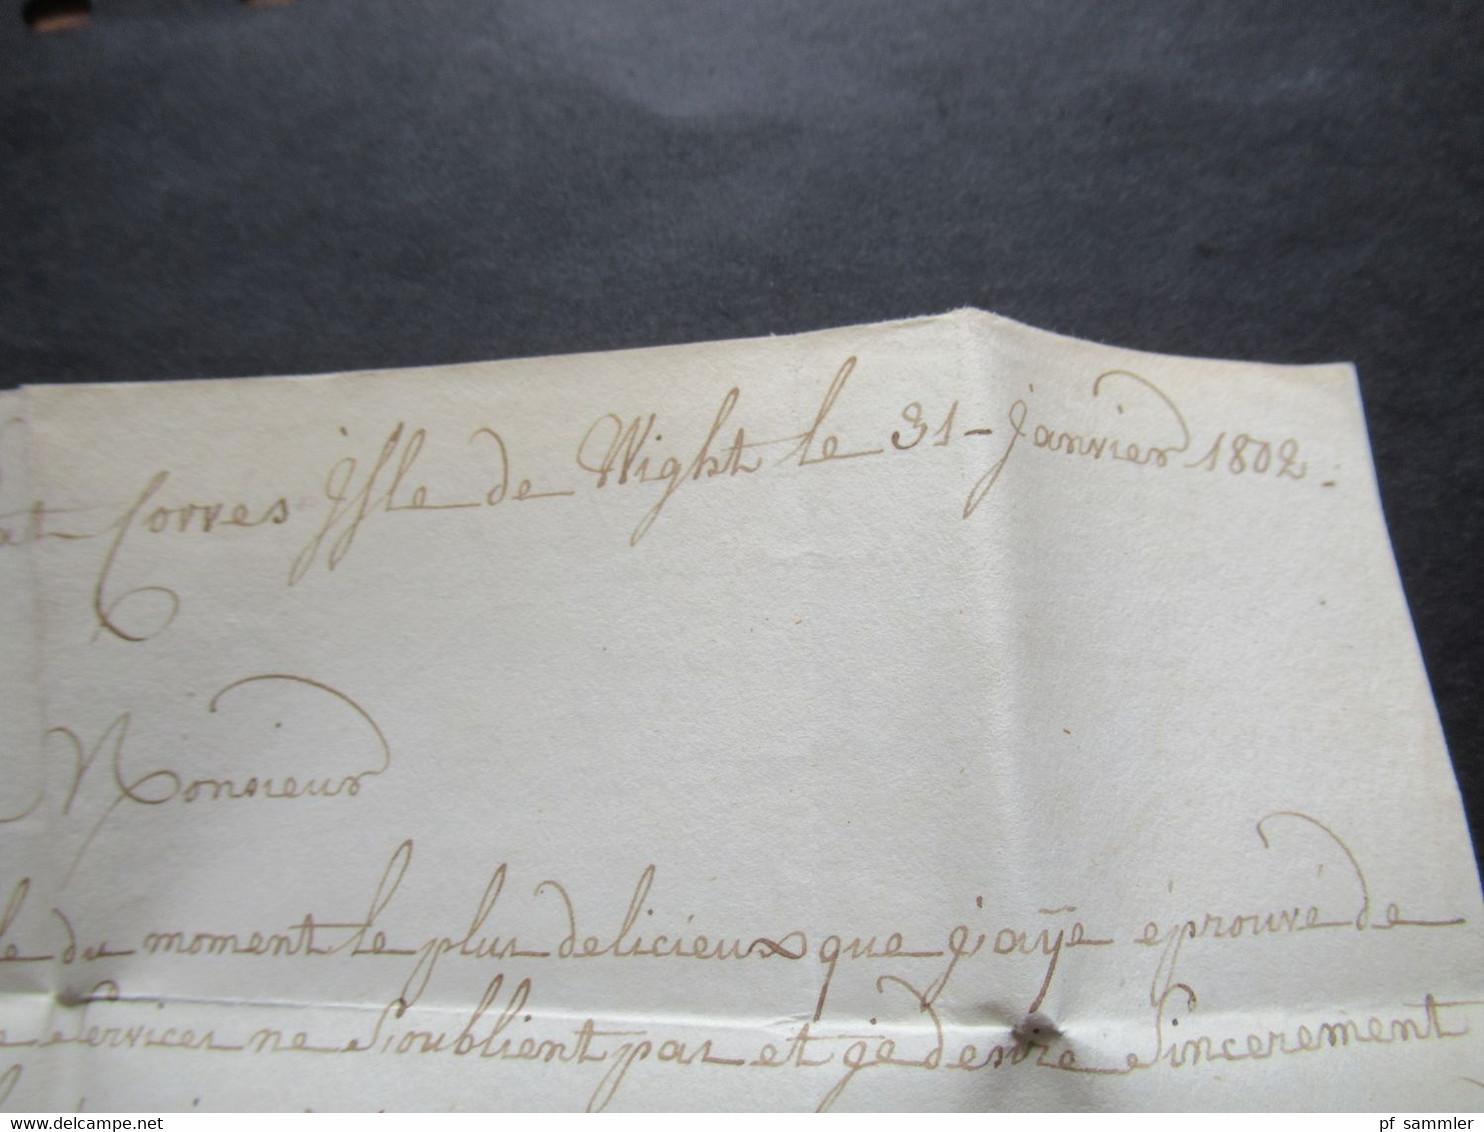 at Corres Isle de Wight le 31 - Janvier 1802.
Monsieur
le du moment le plus delicieux que j'aÿe éprouvé de
Services ne S'oublient pas et je desire Sincerement
www.delcampe.net
pf_sammler